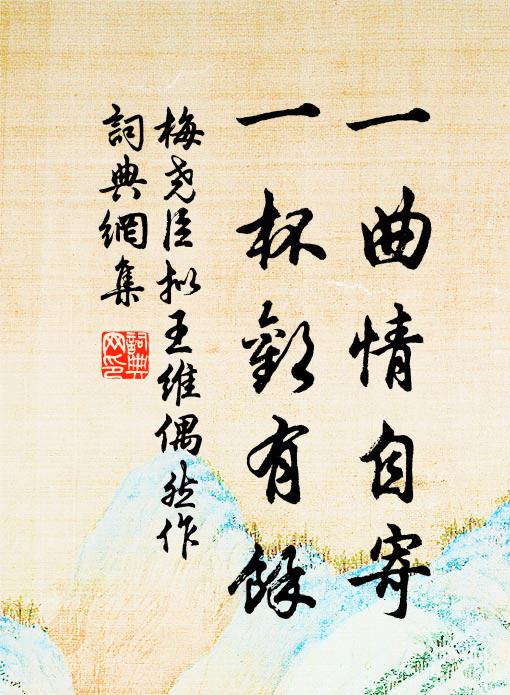 一曲情自寄
一杯歡有餘
梅尧臣拟王維偶然作
詞典網集
詞典网印